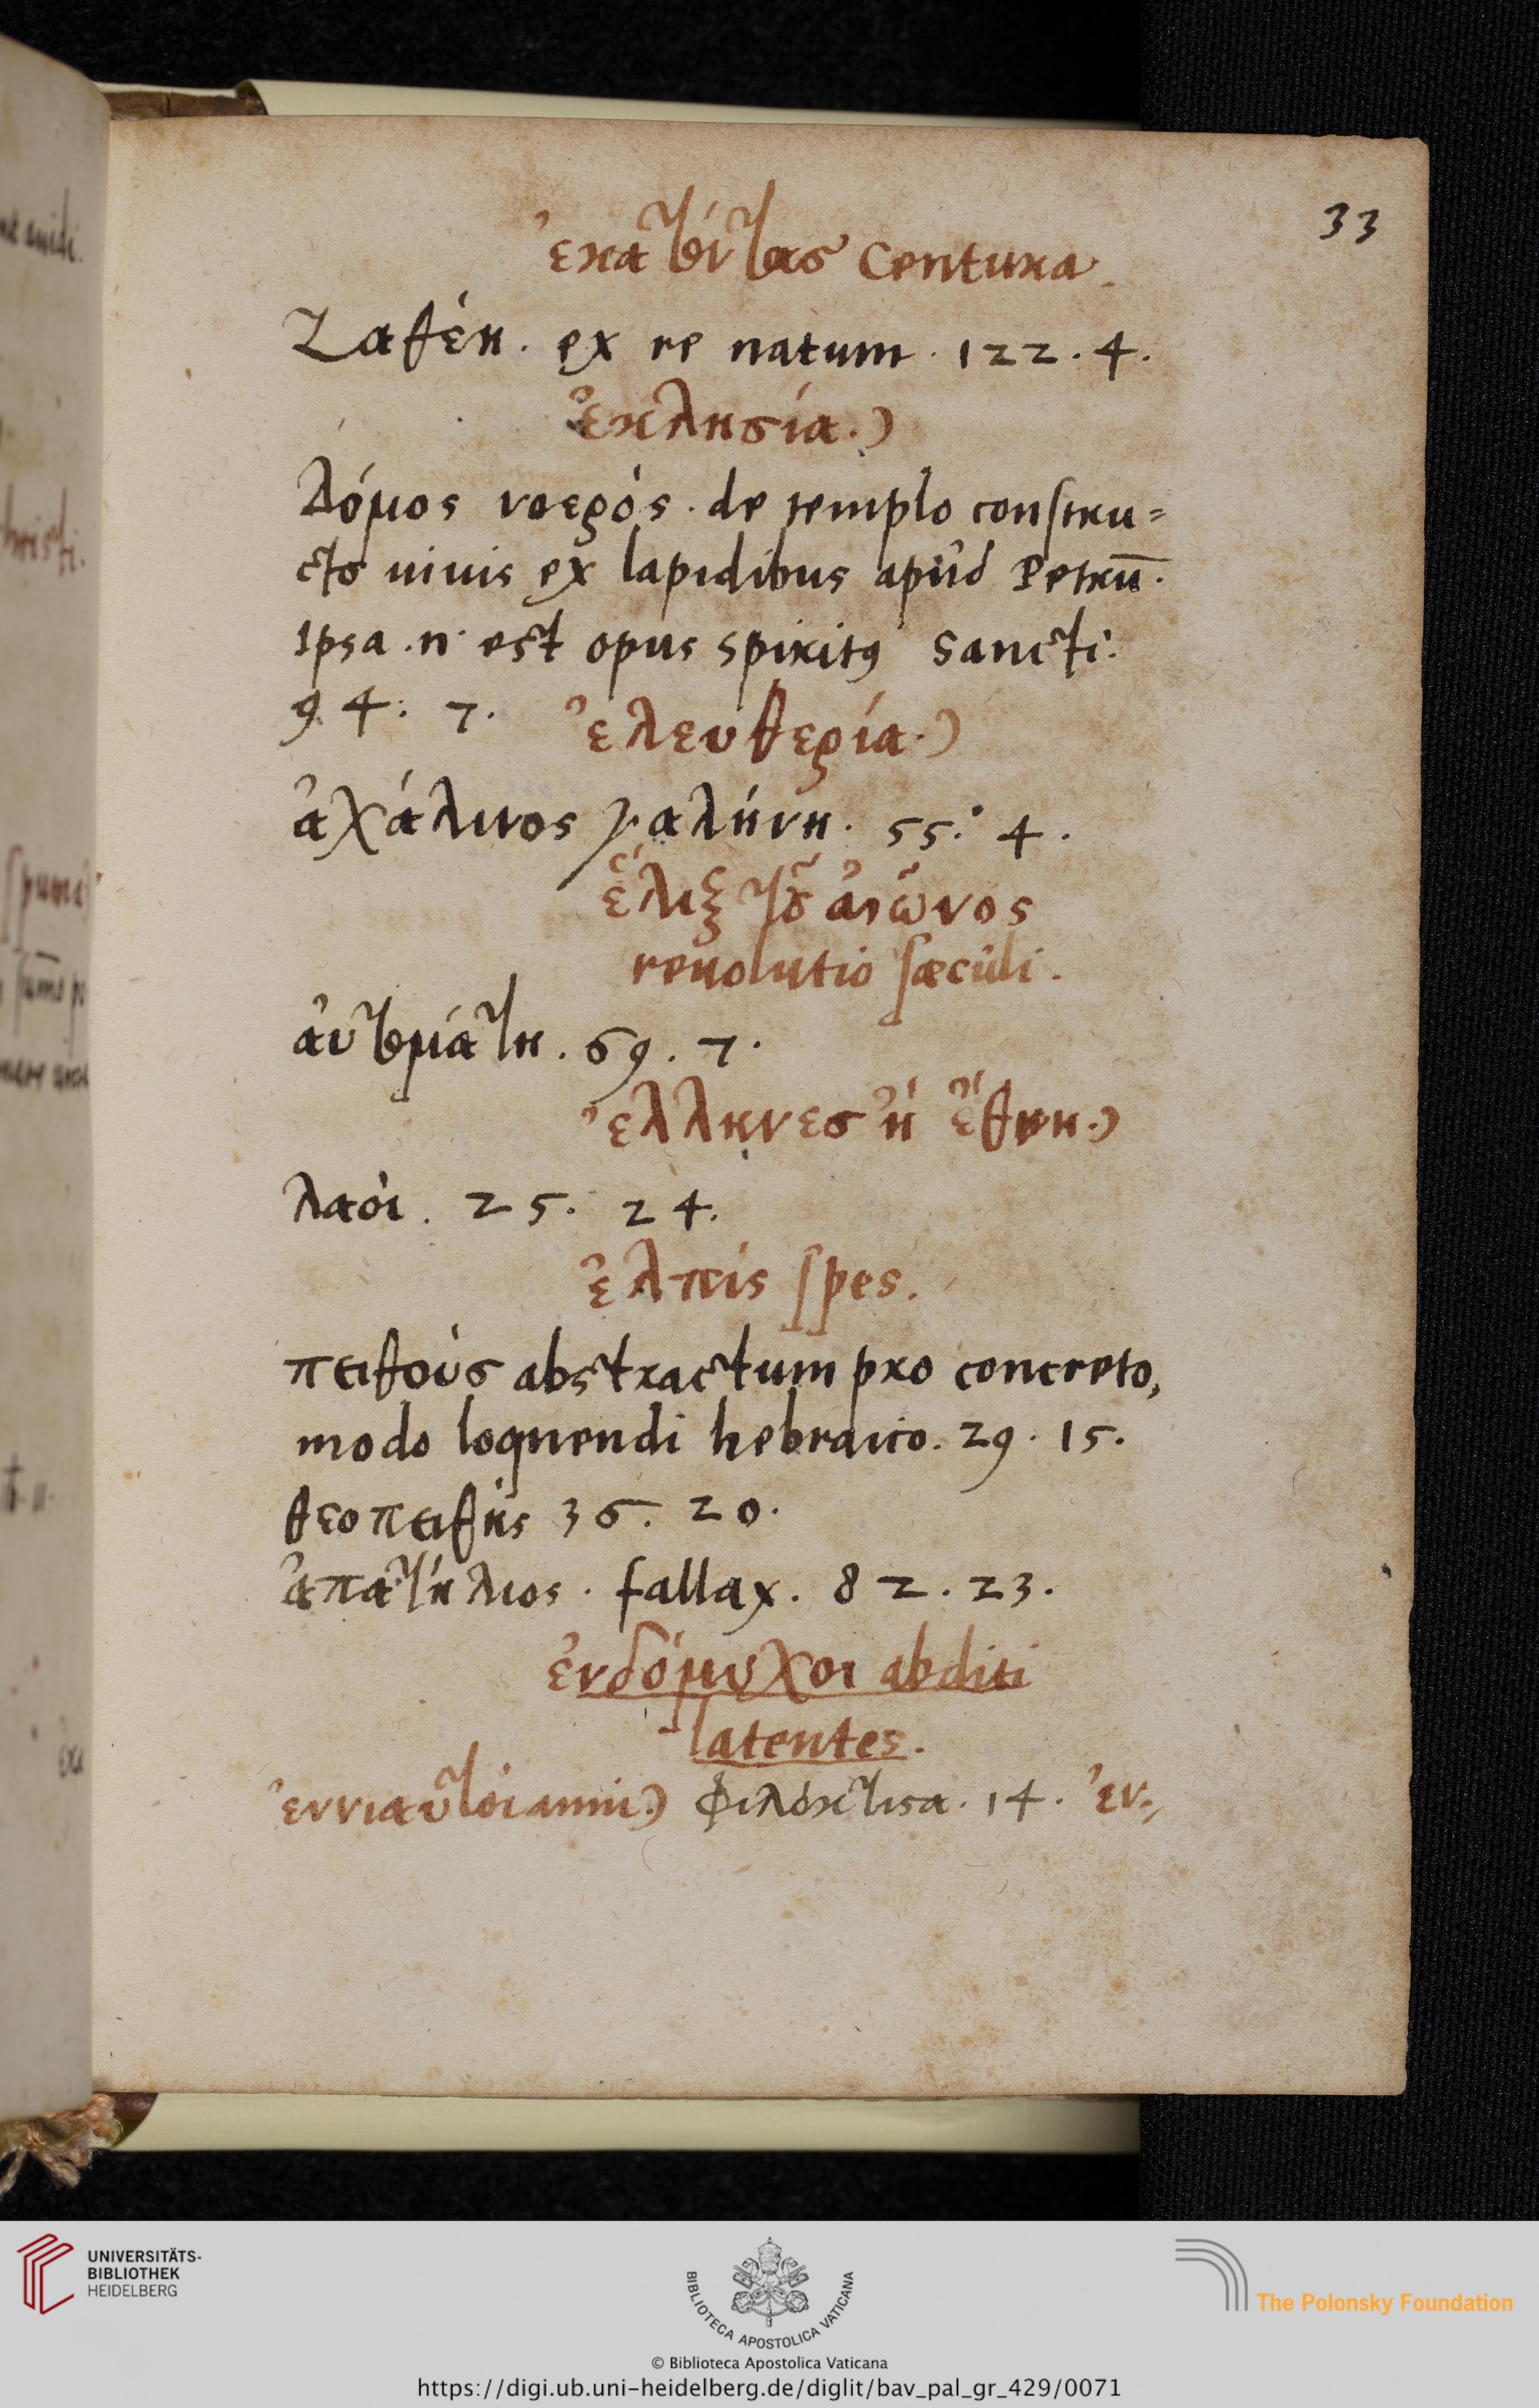 33
ἑκατόντας Centuria.
Ζαθέη. ex re natum. 122. 4.
ἐκκλησία.)
Δόμος νοερός. de templo constru=
cto uiuis ex lapidibus apud Petrū.
Ipsa .n. est opus spiritꝰ Sancti.
94. 7. ἐλευθερία.)
ἀχάλινος γαλήνη. 55. 4.
ἕλιξ τοῦ ἀιῶνος
reuolutio sæculi.
ἀυτομάτη. 69. 7.
ἐλληνεσ ἢ ἔθνη.)
λαόι. 25. 24.
ἐλπίς spes.
πειθούσ abstractum pro concreto,
modo loquendi hebraico. 29. 15.
θεοπειθής 36. 20.
ἀπατήλιος. fallax. 82. 23.
ἐνδόμυχοι abditi
latentes.
ἐννιαυτόι anni.) 14. ἐν.,
UNIVERSITÄTS-
BIBLIOTHEK
HEIDELBERG
BIBLIOTECA APOSTOLICA VATICANA
The Polonsky Foundation
© Biblioteca Apostolica Vaticana
https://digi.ub.uni-heidelberg.de/diglit/bav_pal_gr_429/0071